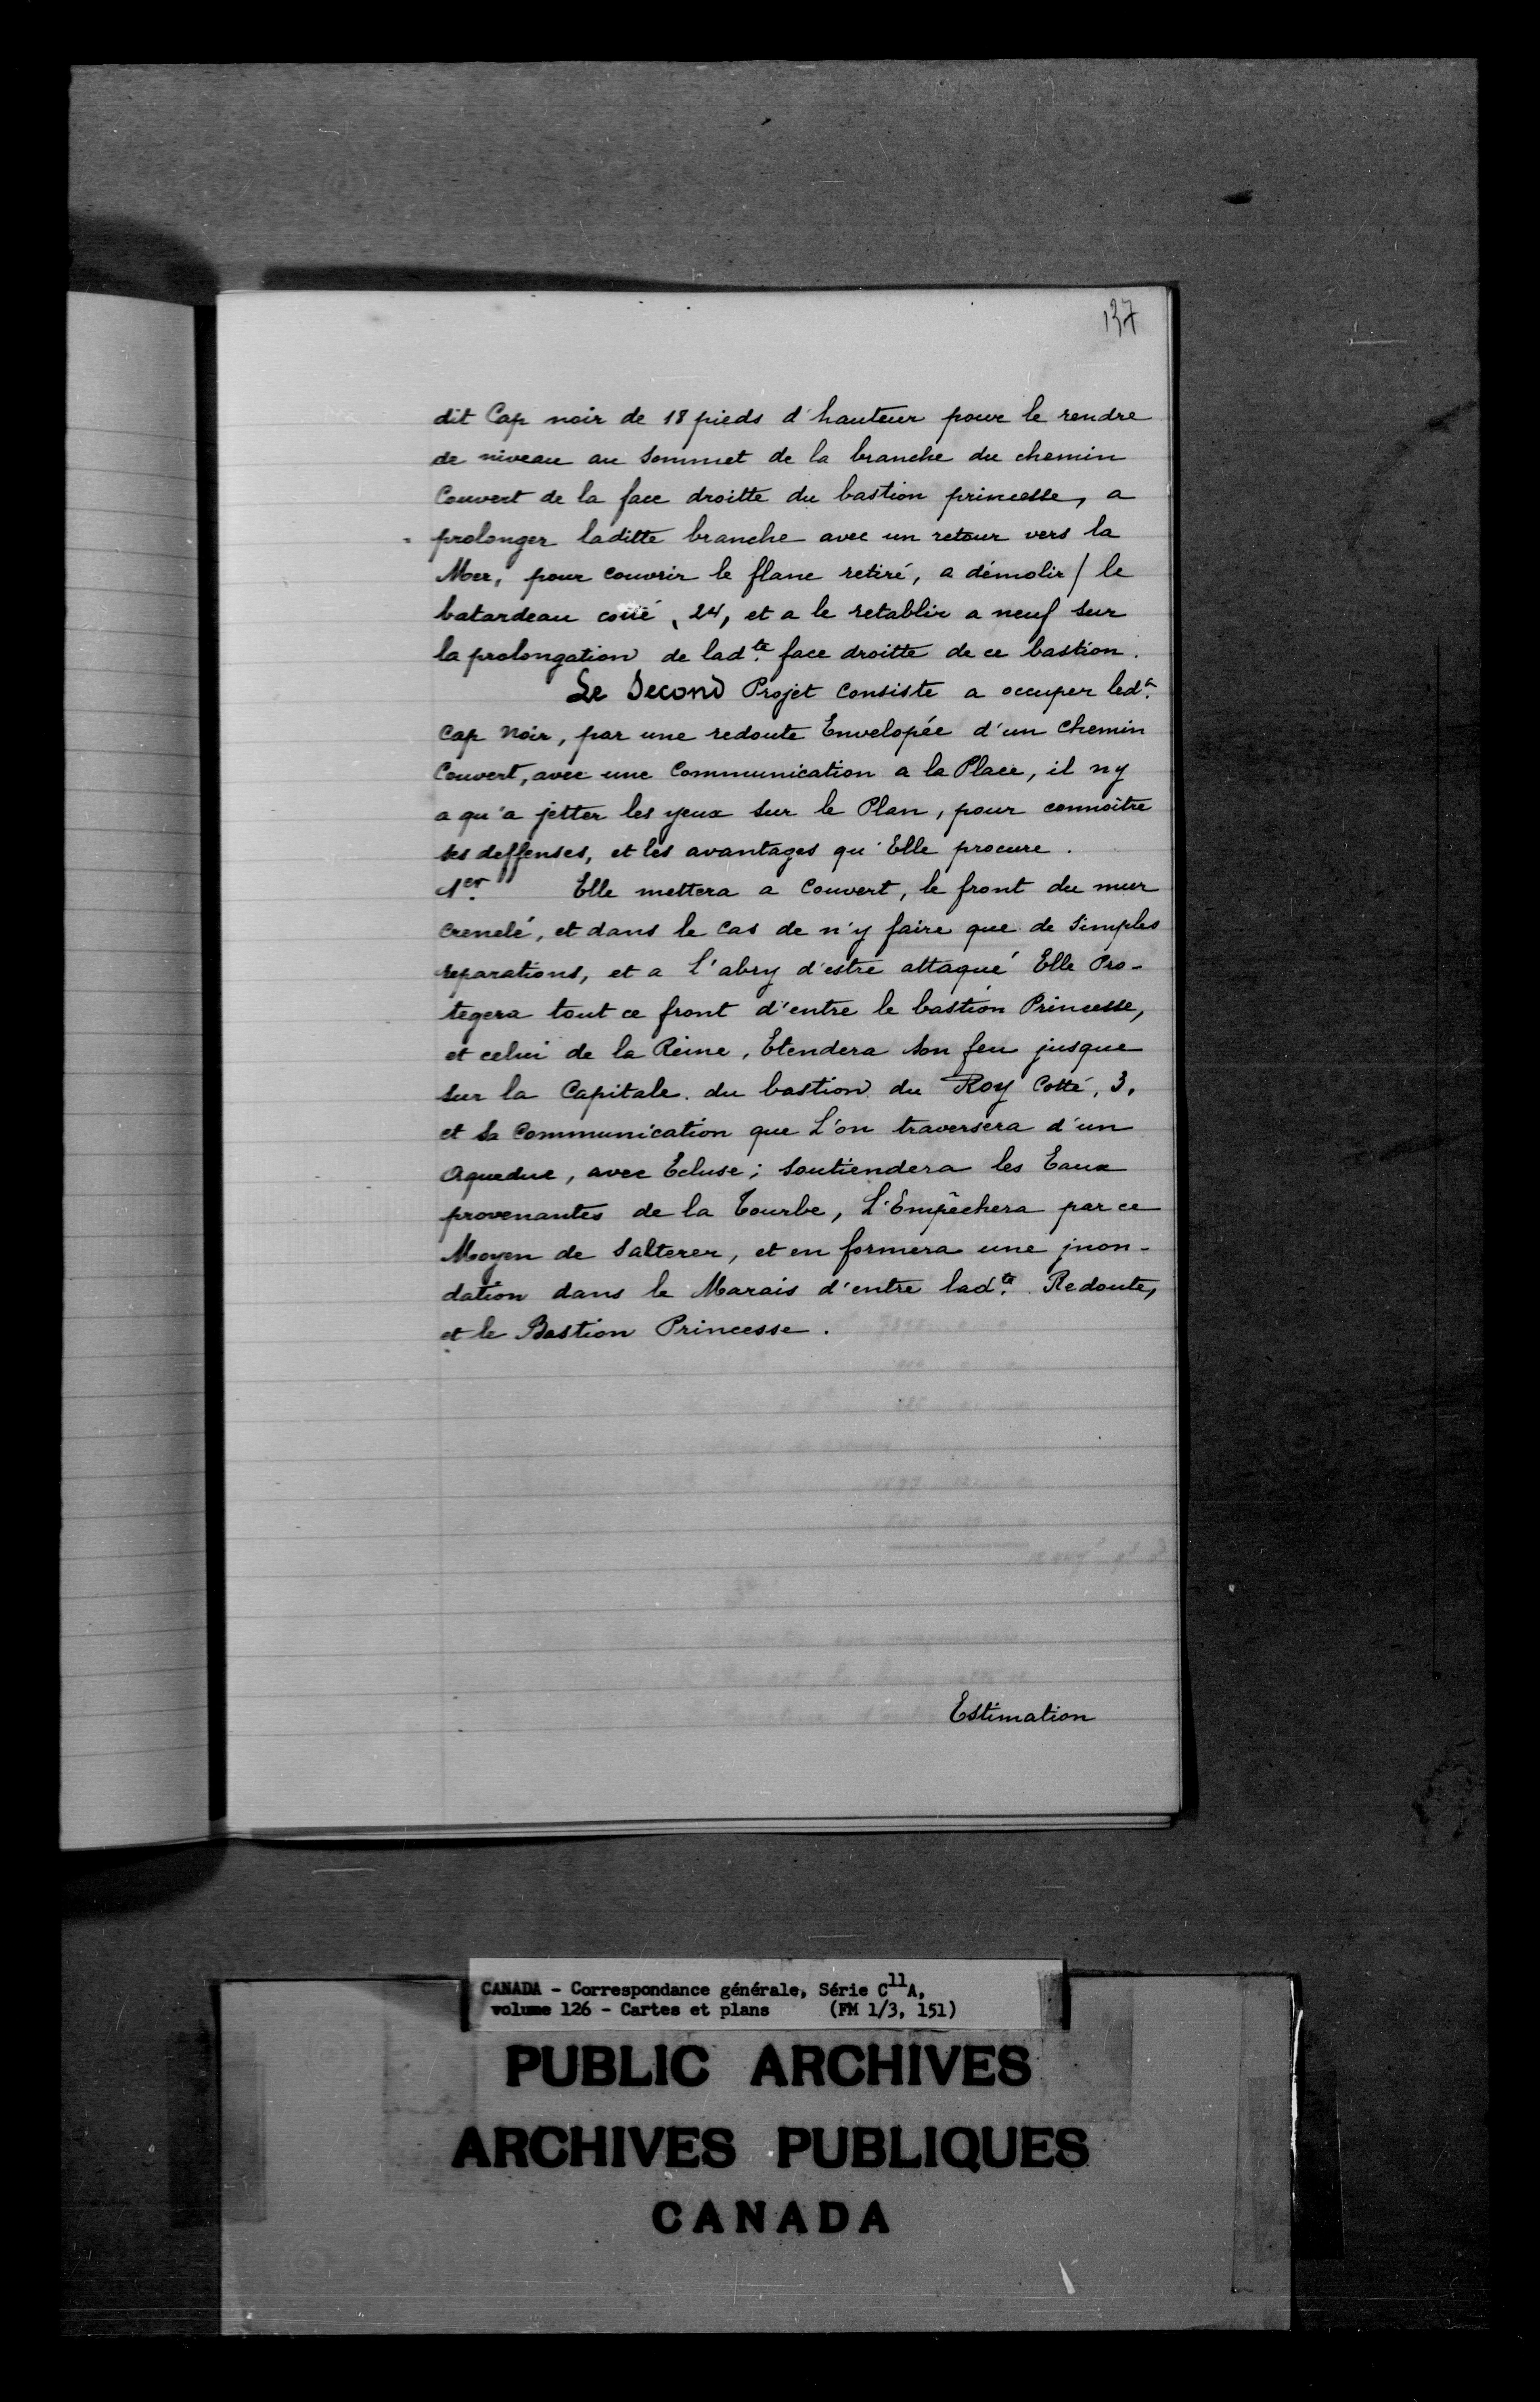 137
dit Cap noir de 18 pieds d'hauteur pour le rendre
de niveau au Sommet de la branche du chemin
Couvert de la face droitte du bastion princesse, a
prolonger laditte branche avec un retour vers la
Mer, pour couvrir le flanc retiré, a démolir / le
batardeau cotté, 24, et a le retablir a neuf sur
la prolongation de ladte. face droitte de ce bastion.
Le Second Projet Consiste a occuper ledt.
Cap Noir, par une redoute Envelopée d'un Chemin
Couvert, avec une Communication a la Place, il ny
a qu'a jetter les yeux sur le Plan, pour connoitre
ses deffenses, et les avantages qu'Elle procure.
1er. Elle mettera a Couvert, le front du mur
Crenelé, et dans le Cas de n'y faire que de Simples
reparations, et a l'abry d'estre attaqué Elle Pro-
tegera tout ce front d'entre le bastion Princesse,
et celui de la Reine, Etendera son feu jusque
sur la Capitale du bastion du Roy Cotté, 3,
et sa Communication que l'on traversera d'un
Aqueduc, avec Ecluse; Soutiendera les Eaux
provenantes de la Tourbe, L'Empêchera par ce
Moyen de Salterer, et en formera une jnon-
dation dans le Marais d'entre ladte. Redoute,
et le Bastion Princesse.
Estimation
CANADA - Correspondance générale, Série C11A,
volume 126 - Cartes et plans (FM 1/3, 151)
PUBLIC ARCHIVES
ARCHIVES PUBLIQUES
CANADA